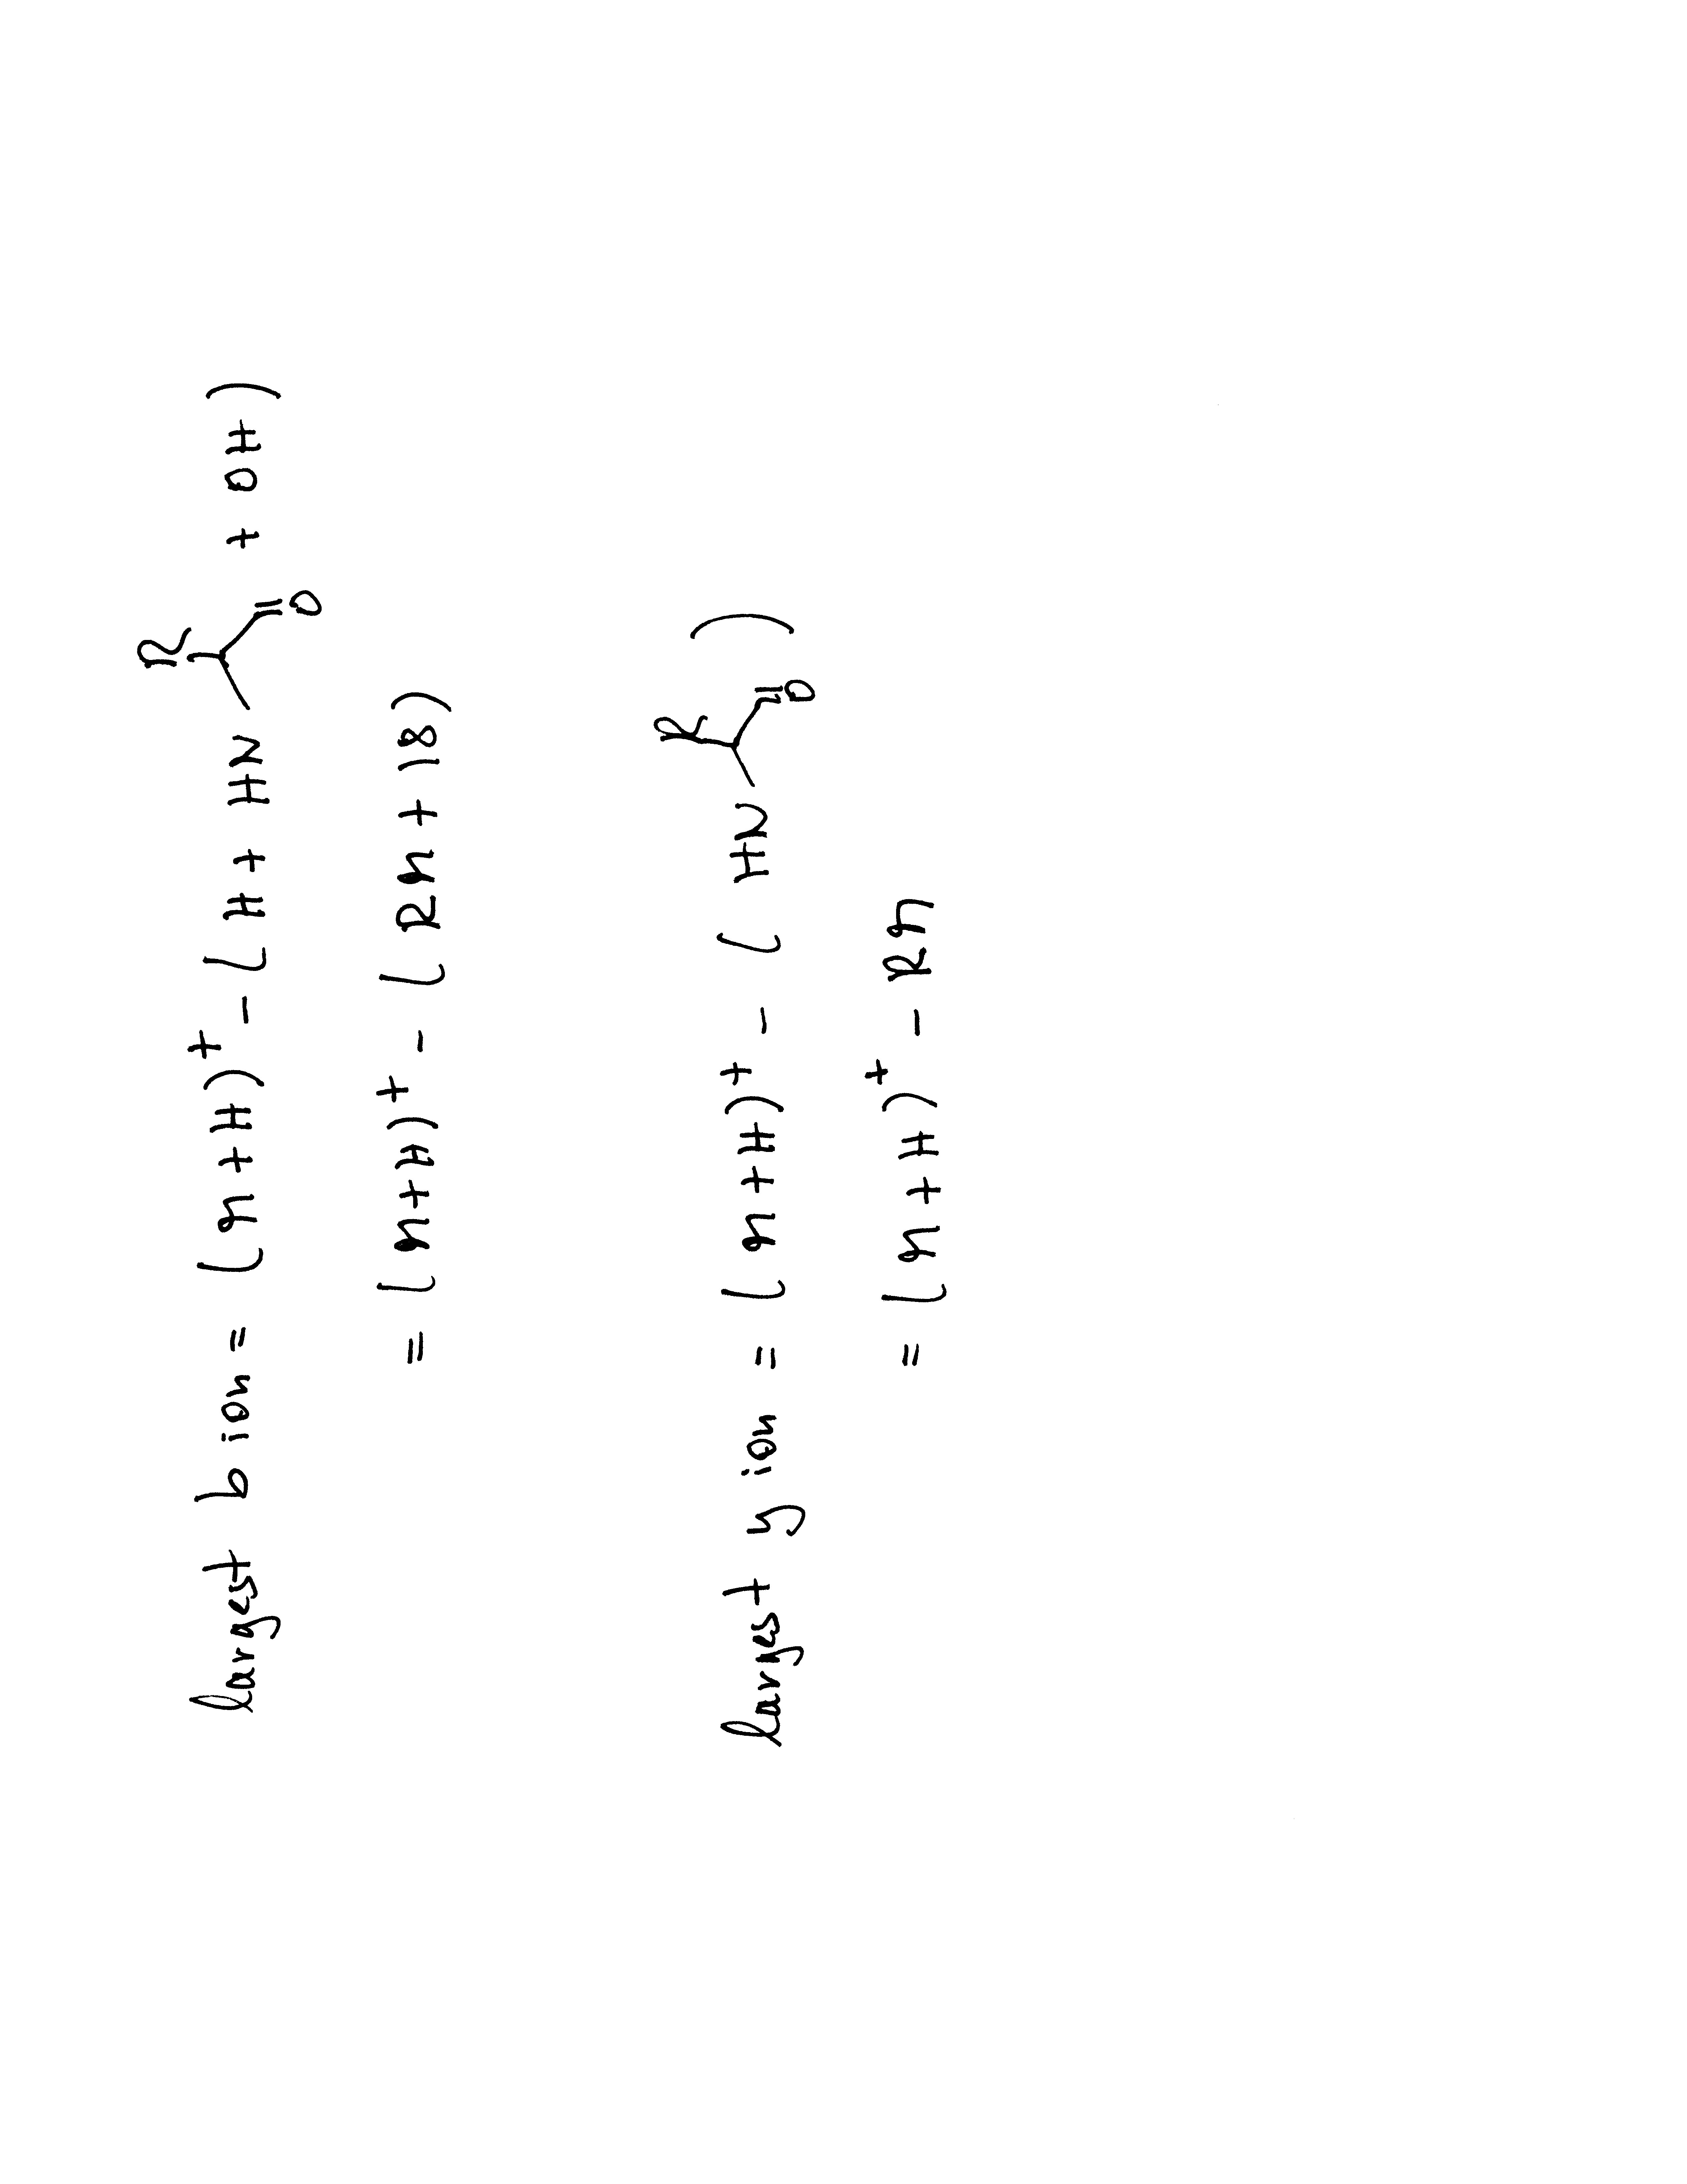 R
largest b ion = (M+H)⁺ - (H + HN + OH)
O
= (M+H)⁺ - (RM + 18)
R
largest y ion = (M+H)⁺ - (HN )
O
= (M+H)⁺ - RM